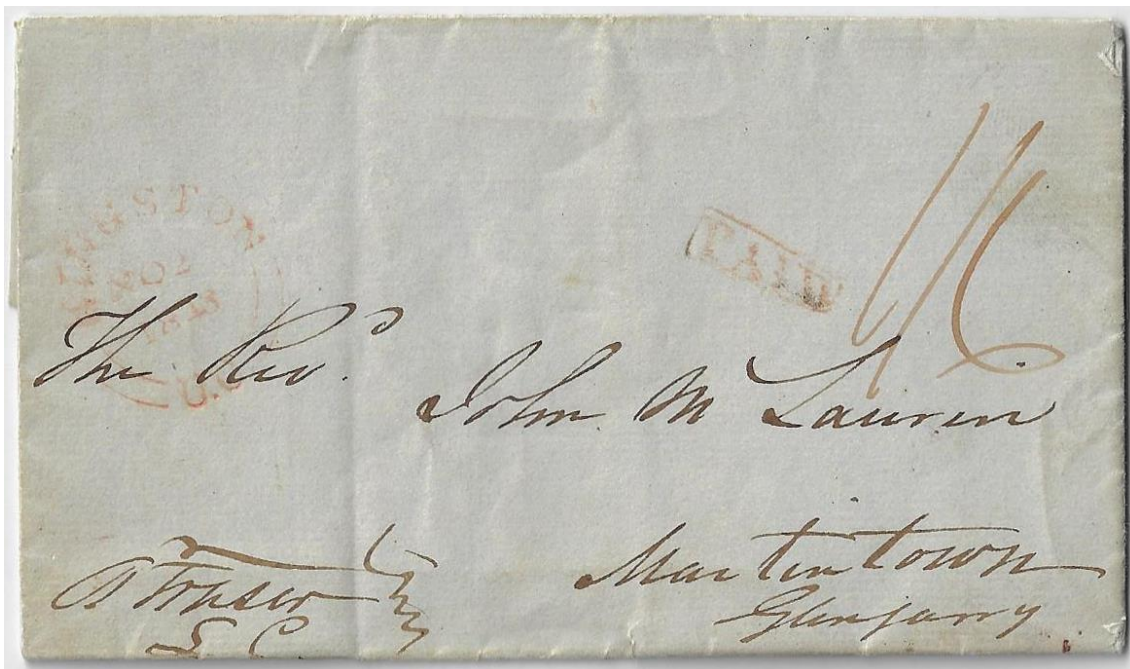 KINGSTON
NOV
1843
U.C
PAID
1/6
The Revd.
John Mc Laurin
Martintown
Glengarry
A Fraser
L C